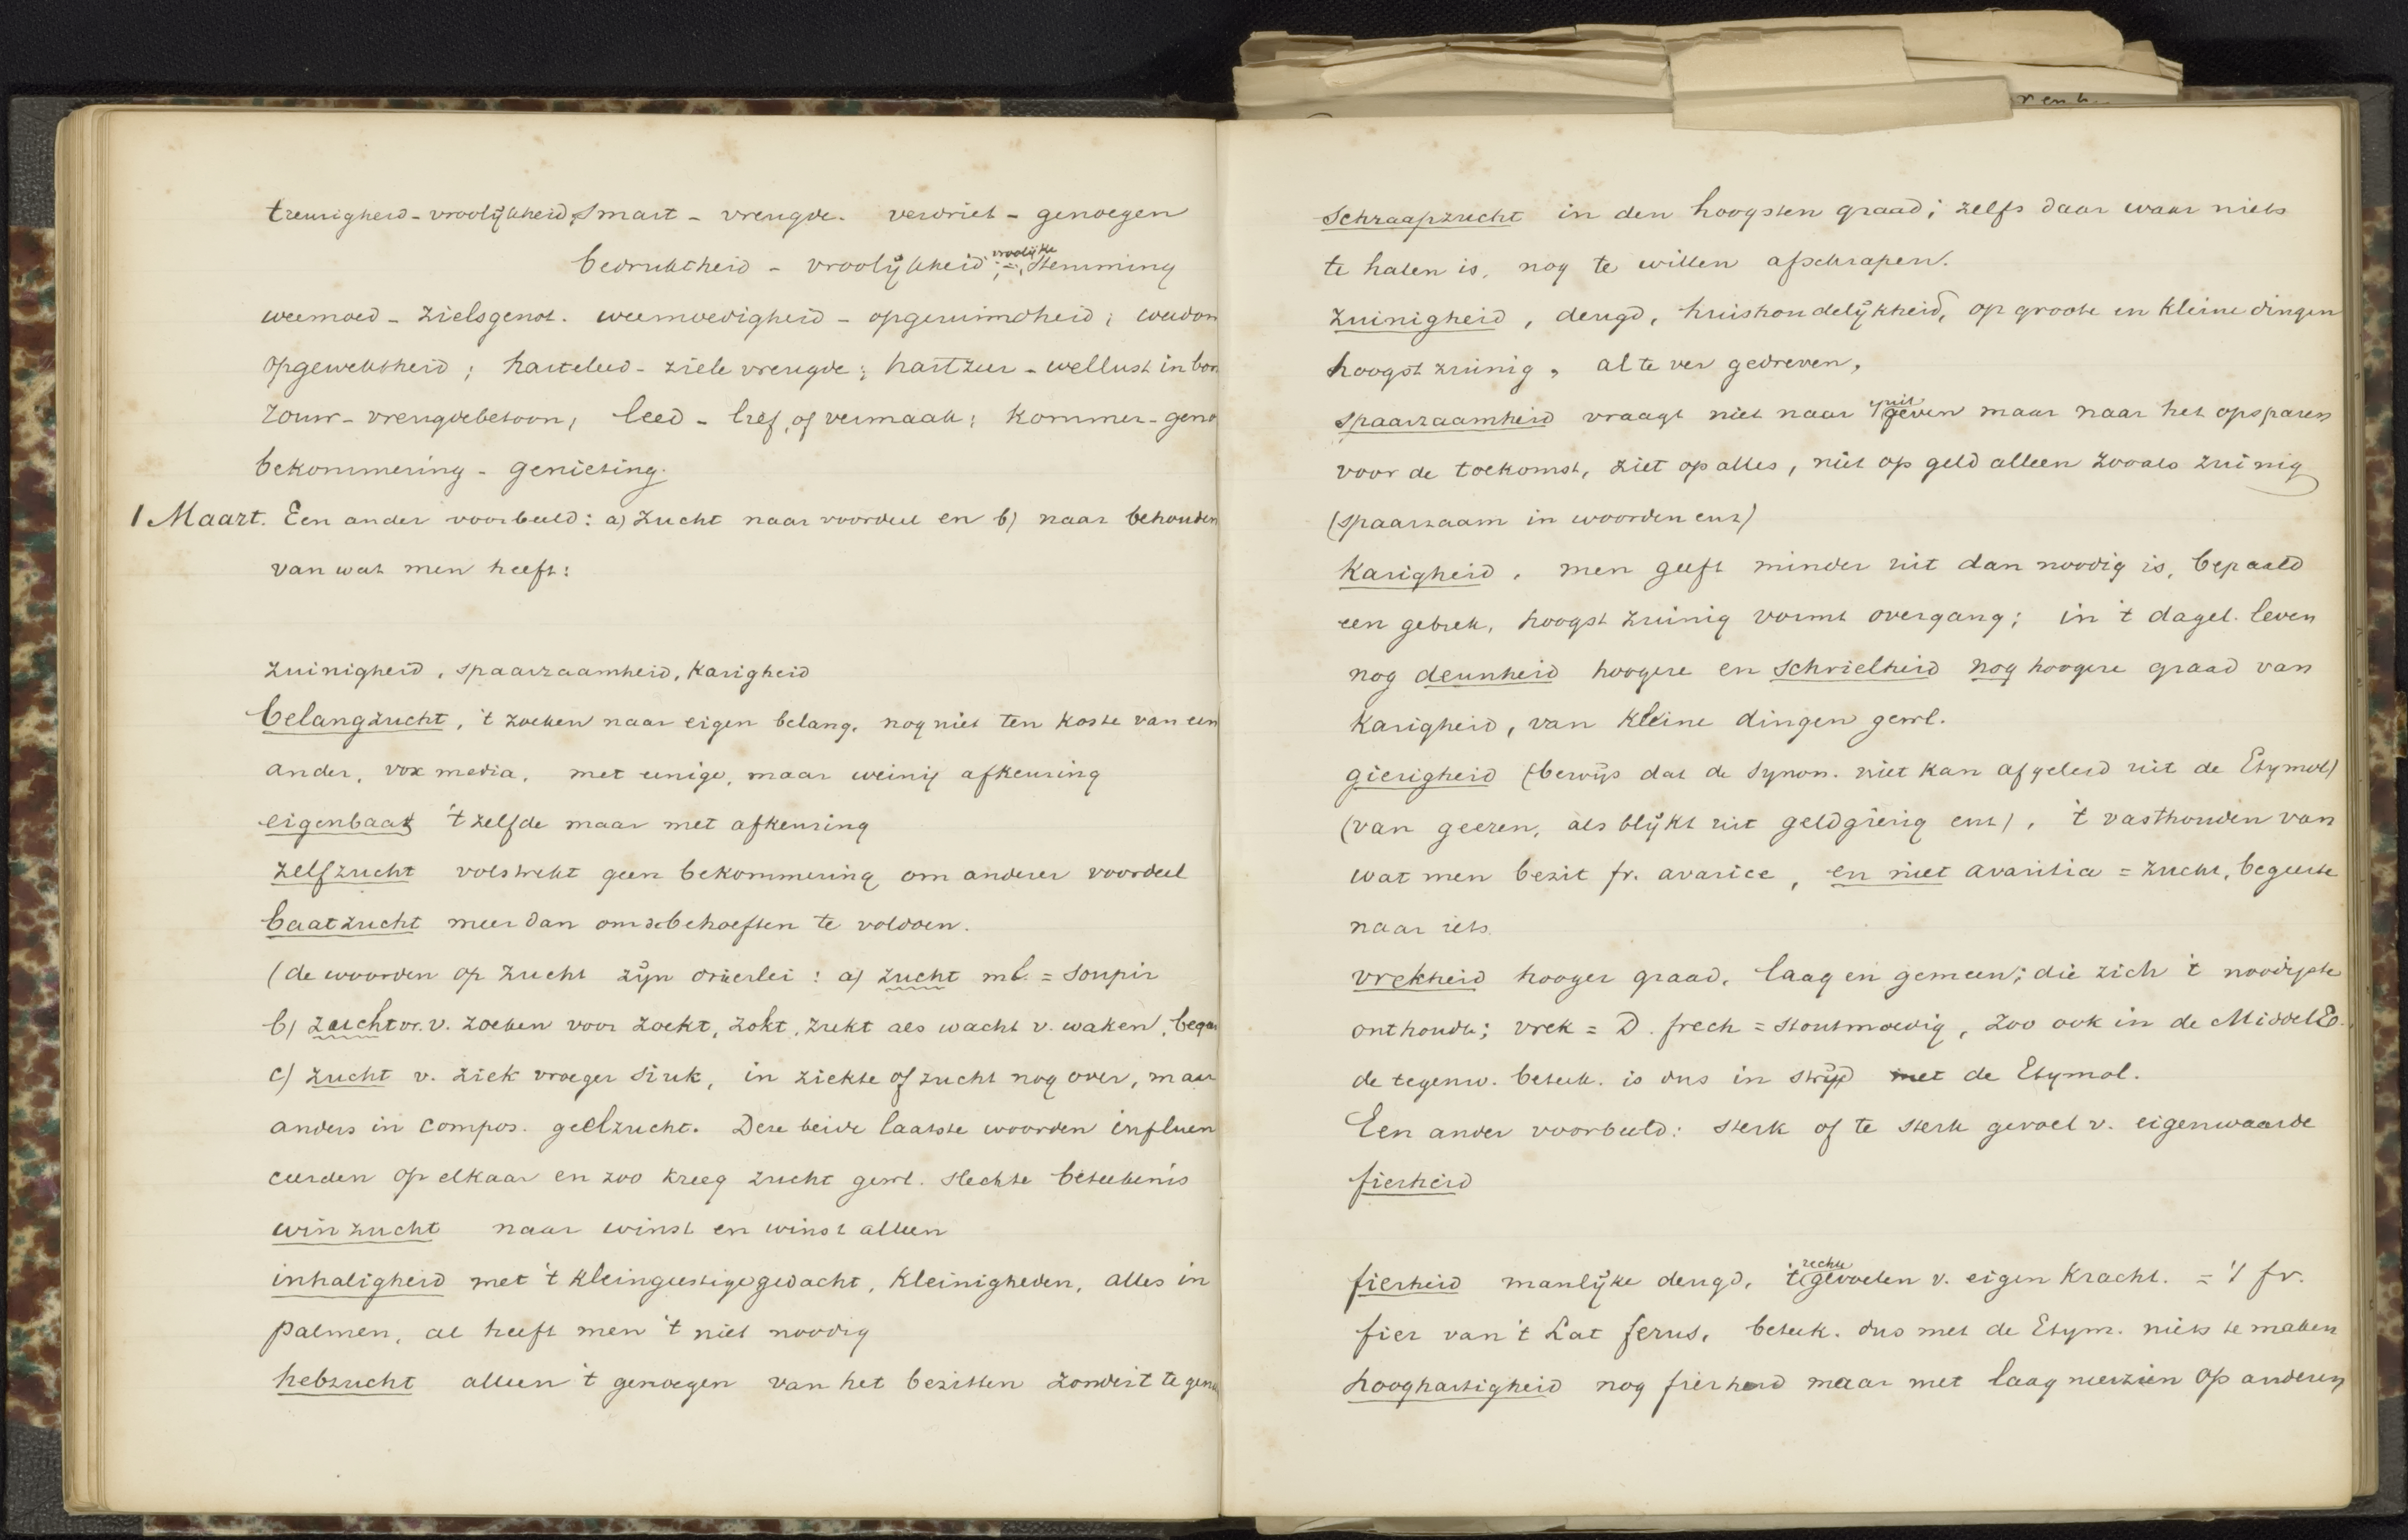 treurigheid - vroolijkheid, smart - vreugde. verdriet - genoegen
bedruktheid - vroolijkheid; = vroolijke stemming
weemoed - zielsgenot. weemoedigheid - opgeruimdheid;
opgewektheid; harteleed - ziele vreugde; hartzeer - wellust in
rouw - vreugdebetoon; leed - lief, of vermaak; kommer - geno
bekommering - genieting.
1 Maart. Een ander voorbeeld: a) zucht naar voordeel en b) naar behouden
van wat men heeft:
zuinigheid, spaarzaamheid, karigheid
belangzucht, 't zoeken naar eigen belang, nog niet ten koste van een
ander, vox media, met eenige, maar weinig afkeuring
eigenbaat 't zelfde maar met afkeuring
zelfzucht volstrekt geen bekommering om anderer voordeel
baatzucht meer dan om de behoeften te voldoen.
(de woorden op zucht zijn drieërlei: a) zucht ml. = soupir
b) zucht vr. v. zoeken voor zoekt, zokt, zukt als wacht v. waken,
c) zucht v. ziek vroeger siuk, in ziekte of zucht nog over, maar
anders in compos. geelzucht. Deze beide laatste woorden influen
ceerden op elkaar en zoo kreeg zucht gewl. slechte beteekenis
winzucht naar winst en winst alleen
inhaligheid met 't kleingeestige gedacht, kleinigheden, alles in
palmen, al heeft men 't niet noodig
hebzucht alleen 't genoegen van het bezitten zonder 't te gen
schraapzucht in den hoogsten graad; zelfs daar waar niets
te halen is, nog te willen afschrapen.
zuinigheid, deugd, huishoudelijkheid, op groote en kleine dingen
hoogst zuinig, al te ver gedreven,
spaarzaamheid vraagt niet naar 't uitgeven maar naar het opsparen
voor de toekomst, ziet op alles, niet op geld alleen zooals zuinig
(spaarzaam in woorden enz)
karigheid, men geeft minder uit dan noodig is, bepaald
een gebrek, hoogst zuinig vormt overgang; in 't dagel. leven
nog deunheid hoogere en schrielheid nog hoogere graad van
karigheid, van kleine dingen gewl.
gierigheid (bewijs dat de synon. niet kan afgeleid uit de Etymol)
(van geeren, als blijkt uit geldgierig enz), 't vasthouden van
wat men bezit fr. avarice, en niet avaritia = zucht, begeerte
naar iets.
vrekheid hooger graad, laag en gemeen; die zich 't noodigste
onthoudt; vrek = D. frech = stoutmoedig, zoo ook in de Middele.
de tegenw. beteek. is dus in strijd met de Etymol.
Een ander voorbeeld: sterk of te sterk gevoel v. eigenwaarde
fierheid
fierheid manlijke deugd, 't rechte gevoelen v. eigen kracht. = 't fr.
fier van 't Lat ferus, beteek. dus met de Etym. niets te maken
hooghartigheid nog fierheid maar met laag neerzien op anderen